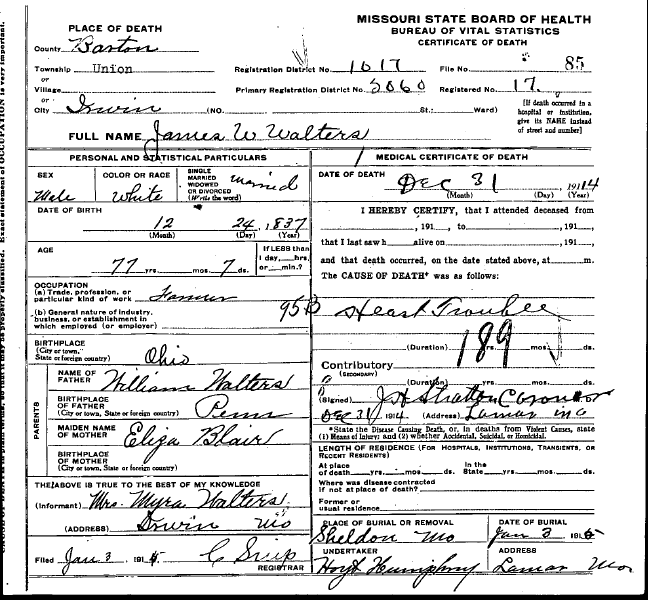 MISSOURI STATE BOARD OF HEALTH
BUREAU OF VITAL STATISTICS
CERTIFICATE OF DEATH
PLACE OF DEATH
County Barton
Township Union
or
Village
or
City Irwin (NO. St.; Ward)
Registration District No. 1017 File No. 85
Primary Registration District No. 5060 Registered No. 17.
[If death occurred in a hospital or institution, give its NAME instead of street and number]
FULL NAME James W Walters
PERSONAL AND STATISTICAL PARTICULARS
SEX
Male
COLOR OR RACE
White
SINGLE
MARRIED
WIDOWED
OR DIVORCED
(Write the word)
married
DATE OF BIRTH
12 24, 1837
(Month) (Day) (Year)
AGE
77 yrs. mos. 7 ds.
If LESS than
1 day, hrs.
or min.?
OCCUPATION
(a) Trade, profession, or
particular kind of work Farmer
(b) General nature of industry,
business, or establishment in
which employed (or employer)
BIRTHPLACE
(City or town,
State or foreign country) Ohio
PARENTS
NAME OF
FATHER William Walters
BIRTHPLACE
OF FATHER
(City or town, State or foreign country) Penn
MAIDEN NAME
OF MOTHER Eliza Blair
BIRTHPLACE
OF MOTHER
(City or town, State or foreign country)
THE ABOVE IS TRUE TO THE BEST OF MY KNOWLEDGE
(Informant) Mrs. Myra Walters
(ADDRESS) Irwin Mo
Filed Jan 3 191
REGISTRAR
MEDICAL CERTIFICATE OF DEATH
DATE OF DEATH Dec 31, 1914
(Month) (Day) (Year)
I HEREBY CERTIFY, that I attended deceased from
, 191 , to , 191 ,
that I last saw h alive on , 191 ,
and that death occurred, on the date stated above, at m.
The CAUSE OF DEATH* was as follows:
95B Heart Trouble
189
(Duration) yrs. mos. ds.
Contributory
(SECONDARY)
(Duration) yrs. mos. ds.
(Signed) J H Stratton Coroner
Dec 31 1914 (Address) Lamar mo
*State the Disease Causing Death, or, in deaths from Violent Causes, state
(1) Means of Injury; and (2) whether Accidental, Suicidal, or Homicidal.
LENGTH OF RESIDENCE (FOR HOSPITALS, INSTITUTIONS, TRANSIENTS, OR
RECENT RESIDENTS)
At place
of death yrs. mos. ds.
In the
State yrs. mos. ds.
Where was disease contracted
if not at place of death?
Former or
usual residence
PLACE OF BURIAL OR REMOVAL
Sheldon Mo
DATE OF BURIAL
Jan 3 1915
UNDERTAKER
Hoyt Humphry
ADDRESS
Lamar Mo